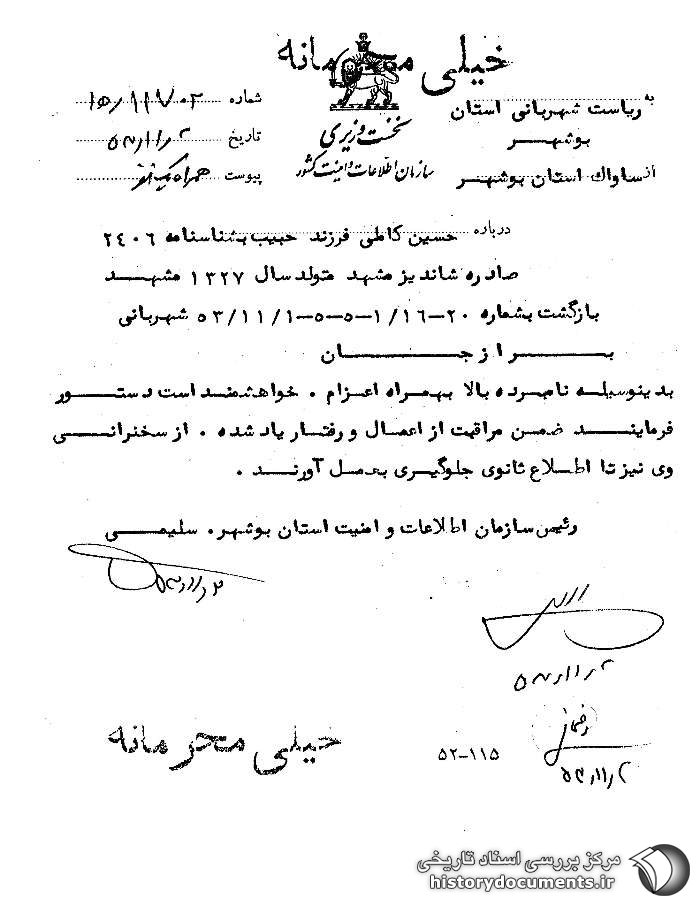 خیلی محرمانه
به ریاست شهربانی استان
بوشهر
از ساواک استان بوشهر
نخست وزیری
سازمان اطلاعات و امنیت کشور
شماره
تاریخ
پیوست همراه یک نفر
درباره حسین کاملی فرزند حبیب بشناسنامه ۲۴۰۶
صادره شاندیز مشهد متولد سال ۱۳۲۷ مشهد
بازگشت بشماره ۲۰-۱۶/۱-۵-۵-۵۳/۱۱/۱ شهربانی
برازجان
بدینوسیله نامبرده بالا بهمراه اعزام . خواهشمند است دستور
فرمایند ضمن مراقبت از اعمال و رفتار یاد شده . از سخنرانی
وی نیز تا اطلاع ثانوی جلوگیری بعمل آورند .
رئیس سازمان اطلاعات و امنیت استان بوشهر. سلیمی
خیلی محرمانه
۵۲-۱۱۵
مرکز بررسی اسناد تاریخی
historydocuments.ir